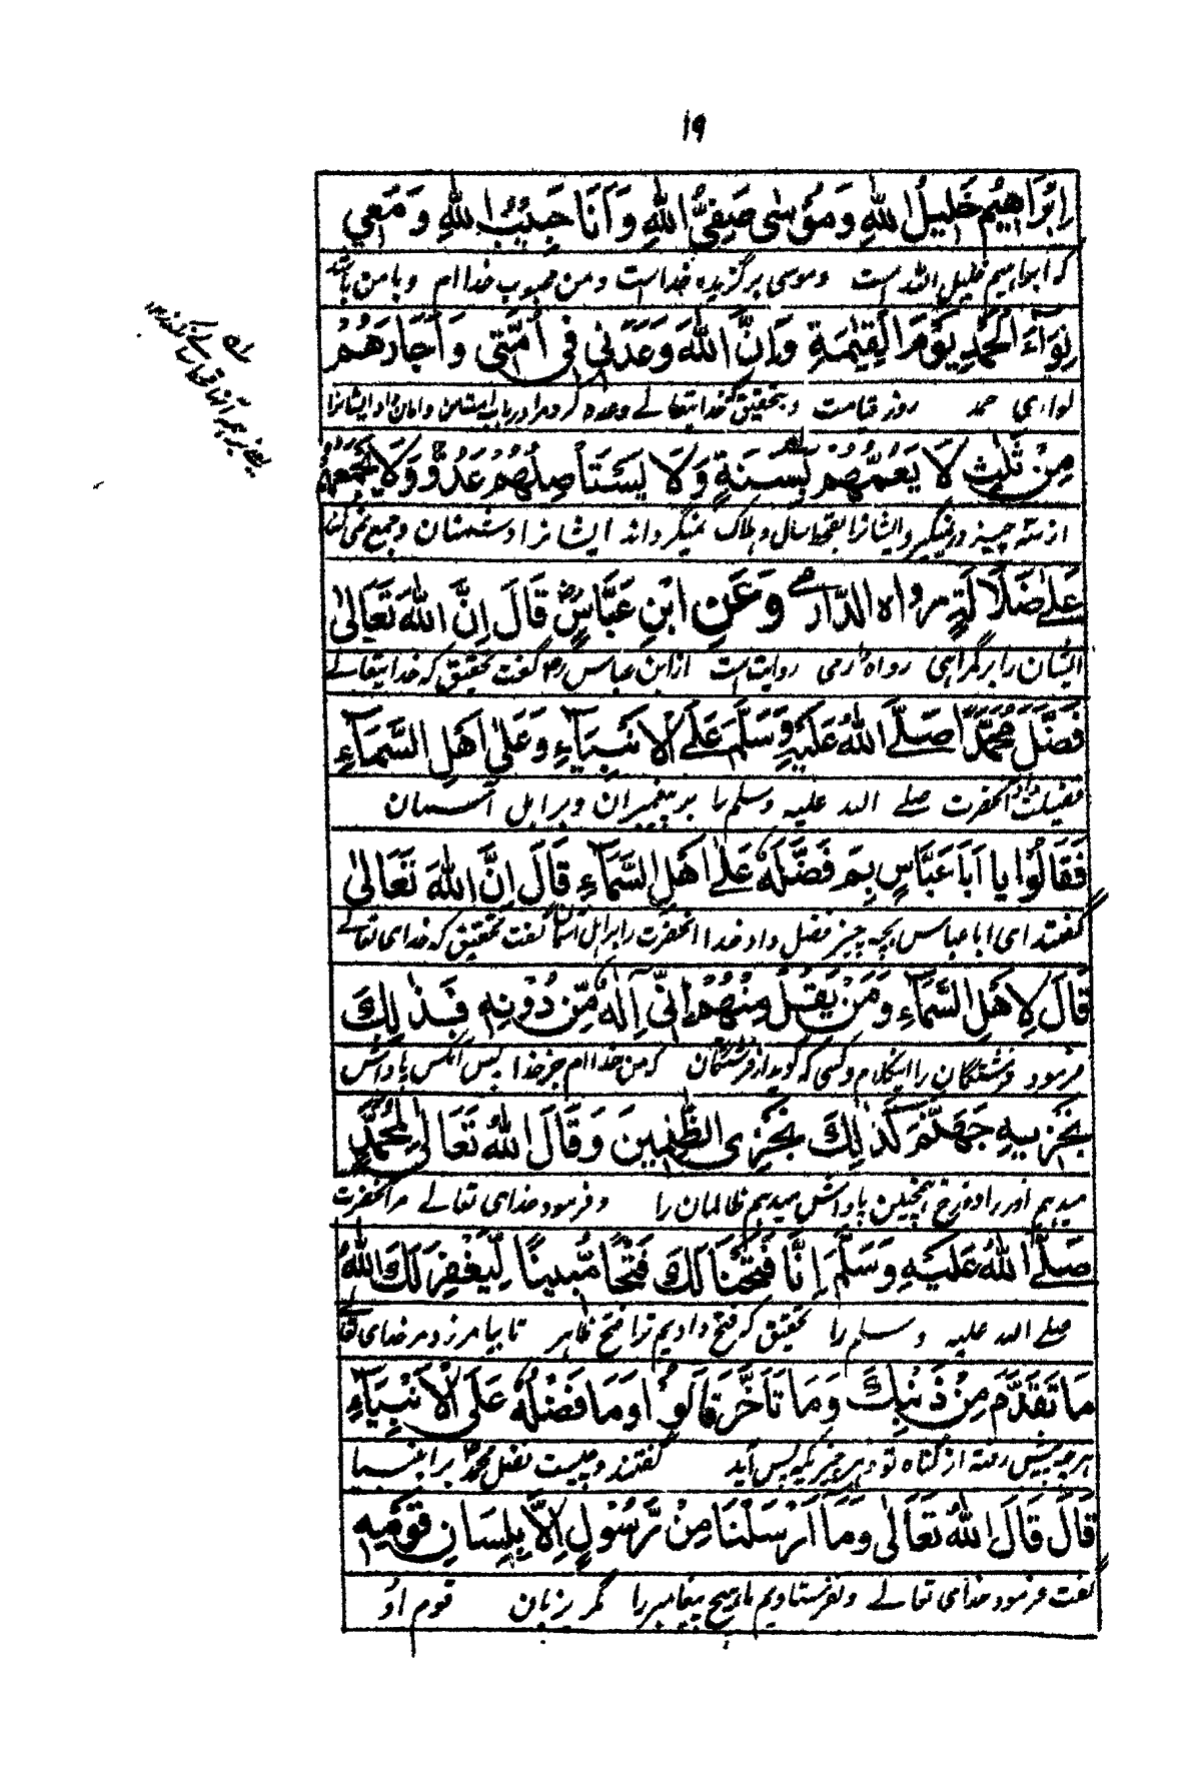 ۱۹
اِبْرَاهِيْمُ خَلِيلُ اللهِ وَمُوْسٰى صَفِيُّ اللهِ وَاَنَا حَبِيْبُ اللهِ وَمَعِي
که ابراهیم خلیل الله است و موسی برگزیده خداست و من محبوب خدا ام و با من باشد
لِوَاءُ الْحَمْدِ يَوْمَ الْقِيٰمَةِ وَاِنَّ اللهَ وَعَدَنِي فِي اُمَّتِي وَاَجَارَهُمْ
لوای حمد روز قیامت و بتحقیق خدایتعالے وعده کرد مرا در باب امت من و امان داد ایشانرا
مِنْ ثَلٰثٍ لَا يَعُمُّهُمْ بِسَنَةٍ وَلَا يَسْتَاْصِلُهُمْ عَدُوٌّ وَلَا يَجْمَعُهُمْ
از سه چیز در نمیگیرد ایشانرا بقحط سال و هلاک نمیگرداند ایشانرا دشمنان و جمع نمی کند
عَلٰى ضَلَالَةٍ رواه الدَّارمي وَعَنِ ابْنِ عَبَّاسٍ قَالَ اِنَّ اللهَ تَعَالٰى
ایشان را بر گمراهی رواه دارمی روایت است از ابن عباس رض گفت بتحقیق که خدایتعالے
فَضَّلَ مُحَمَّدًا صَلَّى اللهُ عَلَيْهِ وَسَلَّمَ عَلَى الْاَنْبِيَآءِ وَعَلٰى اَهْلِ السَّمَآءِ
فضیلت داد آنحضرت صلے الله علیه وسلم را بر پیغمبران و بر اہل آسمان
فَقَالُوْا يا اَبَا عَبَّاسٍ بِمَ فَضَّلَهُ عَلٰى اَهْلِ السَّمَآءِ قَالَ اِنَّ اللهَ تَعَالٰى
گفتند ای ابا عباس بچه چیز فضل داد خدا آنحضرت را بر اہل آسمان گفت بتحقیق که خدای تعالے
قَالَ لِاَهْلِ السَّمَآءِ وَمَنْ يَقُلْ مِنْهُمْ اِنِّيْ اِلٰهٌ مِّنْ دُوْنِهٖ فَذٰلِكَ
فرمود فرشتگان را اینکلام و کسی که گوید از فرشتگان که من خدا ام جز خدا پس آنکس پاداش
نَجْزِيْهِ جَهَنَّمَ كَذٰلِكَ نَجْزِي الظّٰلِمِينَ وَقَالَ اللهُ تَعَالٰى لِمُحَمَّدٍ
میدہم او را دوزخ ہمچنین پاداش میدہم ظالمان را و فرمود خدای تعالے مر آنحضرت
صَلَّى اللهُ عَلَيْهِ وَسَلَّمَ اِنَّا فَتَحْنَا لَكَ فَتْحًا مُّبِينًا لِّيَغْفِرَ لَكَ اللهُ
صلے الله علیه وسلم را بتحقیق که فتح دادیم ترا فتح ظاہر تا بیامرزد مر خدای تعالے
مَا تَقَدَّمَ مِنْ ذَنْبِكَ وَمَا تَاَخَّرَ قالُوْا وَمَا فَضْلُهُ عَلَى الْاَنْبِيَآءِ
ہر چه پیش رفته از گناه تو و ہر چیزیکه پس آید گفتند و چیست فضل محمد بر انبیا
قَالَ قَالَ اللهُ تَعَالٰى وَمَا اَرْسَلْنَا مِنْ رَّسُوْلٍ اِلَّا بِلِسَانِ قَوْمِهٖ
گفت فرمود خدای تعالے و نفرستادیم ما ہیچ پیغامبر را مگر بزبان قوم او